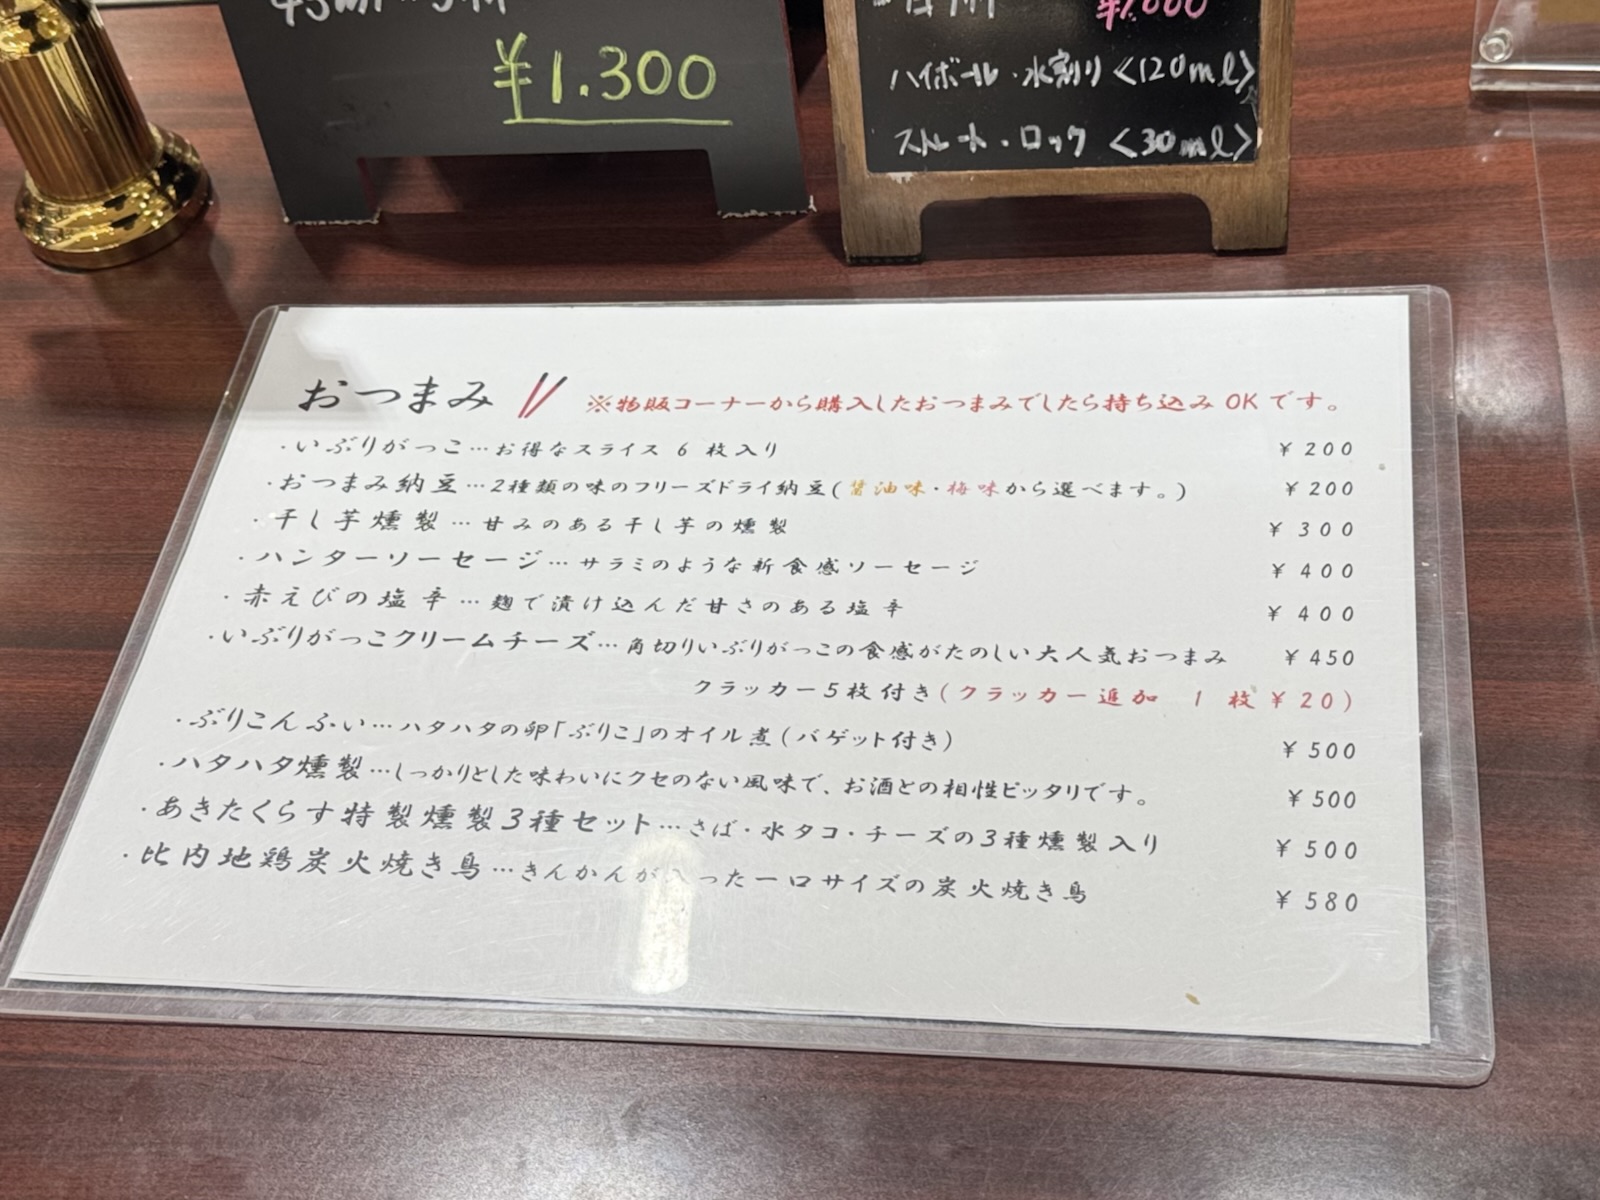 ¥1.300
¥1,000
ハイボール・水割り<120ml>
ストレート・ロック <30ml>
おつまみ ※物販コーナーから購入したおつまみでしたら持ち込みOKです。
・いぶりがっこ…お得なスライス 6 枚入り ¥200
・おつまみ納豆…2種類の味のフリーズドライ納豆(醤油味・梅味から選べます。) ¥200
・干し芋燻製…甘みのある干し芋の燻製 ¥300
・ハンターソーセージ…サラミのような新食感ソーセージ ¥400
・赤えびの塩辛…麹で漬け込んだ甘さのある塩辛 ¥400
・いぶりがっこクリームチーズ…角切りいぶりがっこの食感がたのしい大人気おつまみ ¥450
クラッカー5枚付き(クラッカー追加 1枚¥20)
・ぶりこんふぃ…ハタハタの卵「ぶりこ」のオイル煮(バゲット付き) ¥500
・ハタハタ燻製…しっかりとした味わいにクセのない風味で、お酒との相性ピッタリです。 ¥500
・あきたくらす特製燻製3種セット…さば・水タコ・チーズの3種燻製入り ¥500
・比内地鶏炭火焼き鳥…きんかんが入った一口サイズの炭火焼き鳥 ¥580